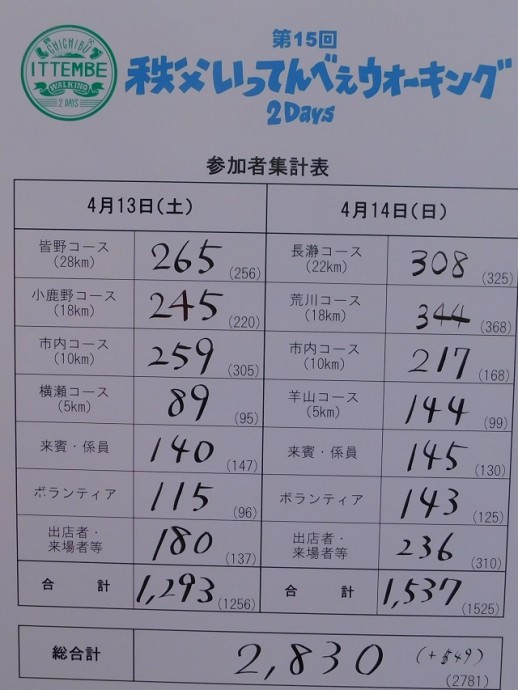 CHICHIBU
ITTEMBE
WALKING
2 DAYS
第15回
秩父いってんべぇウオーキング
2Days
参加者集計表
4月13日(土) 4月14日(日)
皆野コース 265 長瀞コース 308
(28km) (256) (22km) (325)
小鹿野コース 245 荒川コース 344
(18km) (220) (18km) (368)
市内コース 259 市内コース 217
(10km) (305) (10km) (168)
横瀬コース 89 羊山コース 144
(5km) (95) (5km) (99)
来賓・係員 140 (147) 来賓・係員 145 (130)
ボランティア 115 (96) ボランティア 143 (125)
出店者・ 180 出店者・ 236
来場者等 (137) 来場者等 (310)
合計 1,293 (1256) 合計 1,537 (1525)
総合計 2,830 (2781)